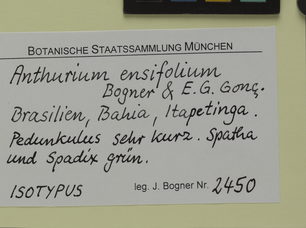 BOTANISCHE STAATSSAMMLUNG MÜNCHEN
Anthurium ensifolium
Bogner & E.G. Gonç.
Brasilien, Bahia, Itapetinga.
Pedunkulus sehr kurz. Spatha
und Spadix grün.
ISOTYPUS leg. J. Bogner Nr. 2450